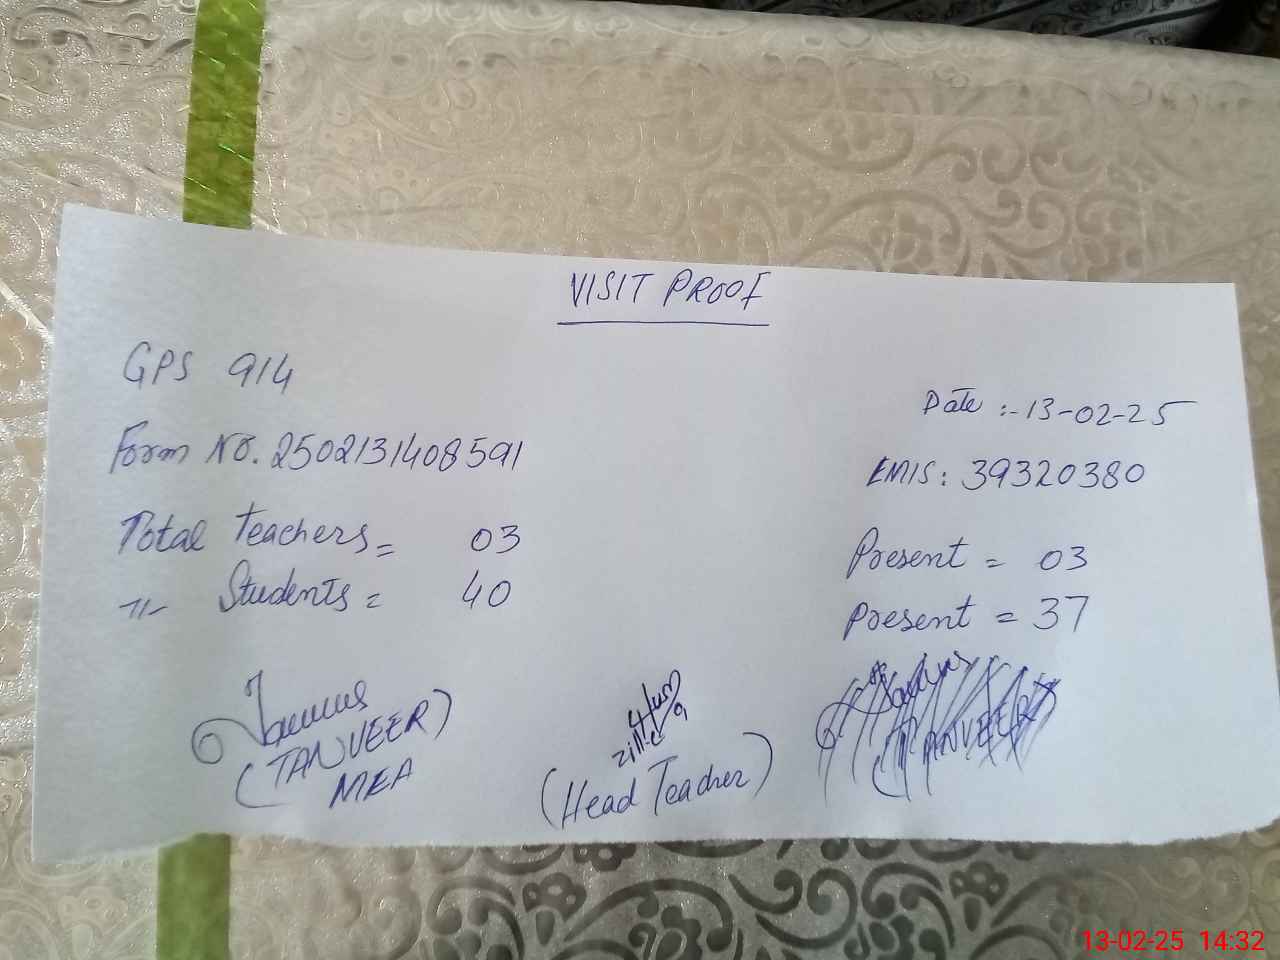 VISIT PROOF
GPS 914
Date :- 13-02-25
Form No. 2502131408591
EMIS: 39320380
Total Teachers = 03
Present = 03
-//- Students = 40
Present = 37
(TANVEER)
MEA
(Head Teacher)
(TANVEER)
13-02-25 14:32